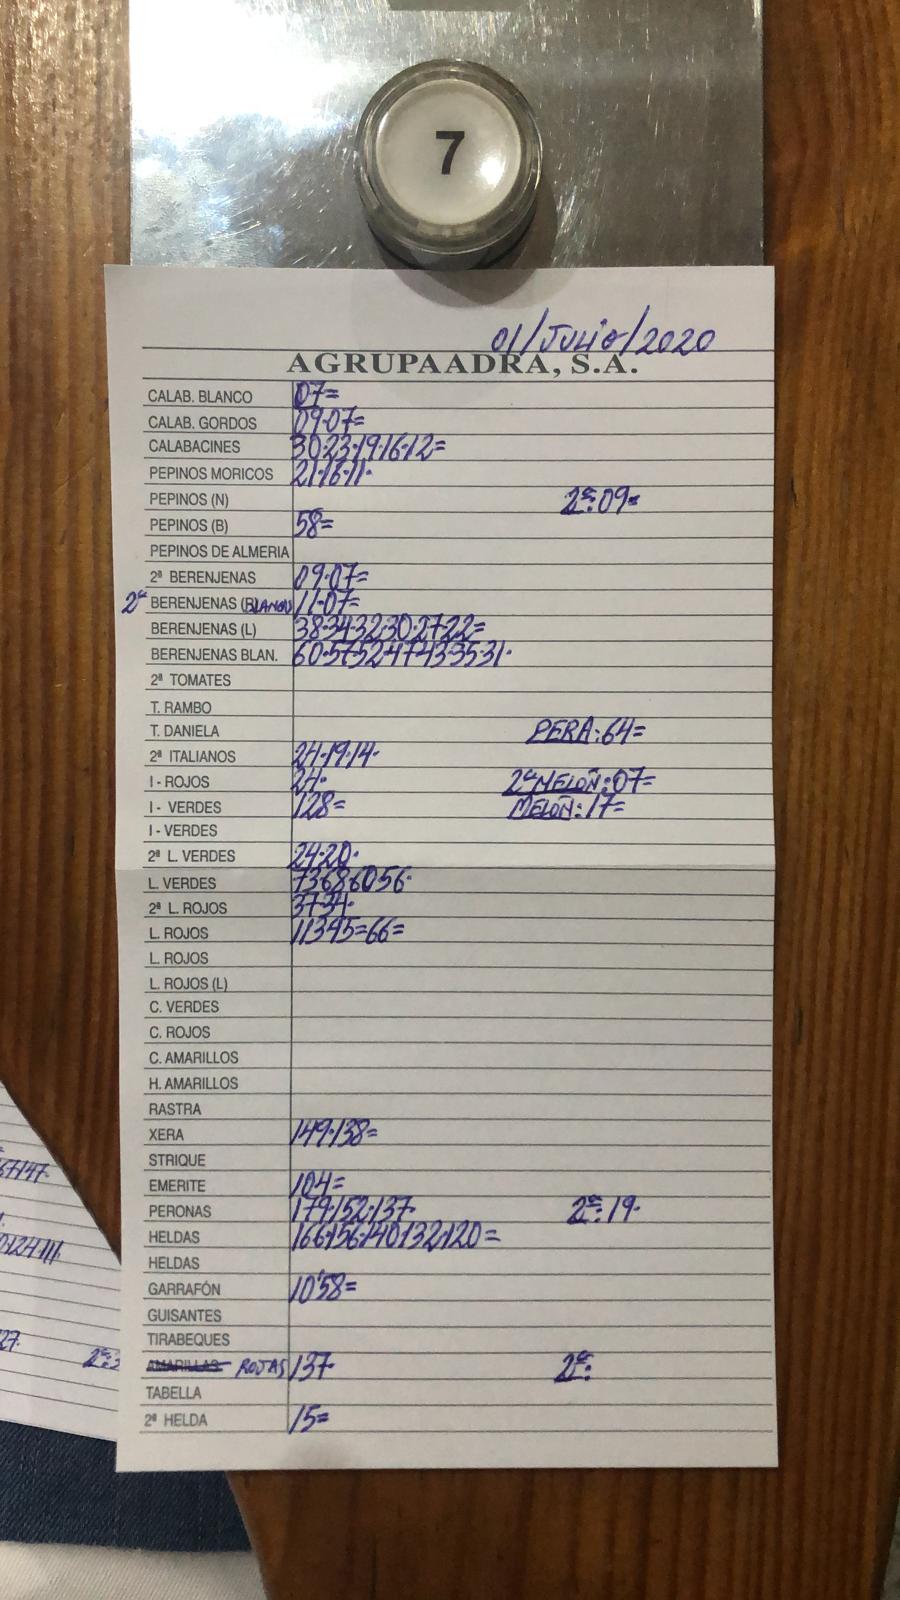 7
01/JULIO/2020
AGRUPAADRA, S.A.
CALAB. BLANCO 07=
CALAB. GORDOS 09·07=
CALABACINES 30·23·19·16·12=
PEPINOS MORICOS 21·16·11·
PEPINOS (N) 2ª: 09=
PEPINOS (B) 58=
PEPINOS DE ALMERIA
2ª BERENJENAS 09·07=
2ª BERENJENAS (BLANCAS 11·07=
BERENJENAS (L) 38·34·32·30·27·22=
BERENJENAS BLAN. 60·57·52·47·43·35·31·
2ª TOMATES
T. RAMBO
T. DANIELA PERA: 64=
2ª ITALIANOS 24·19·14·
I - ROJOS 24· 2ª MELOÑ: 07=
I - VERDES 128= MELOÑ: 17=
I - VERDES
2ª L. VERDES 24·20·
L. VERDES 73·68·60·56·
2ª L. ROJOS 37·34·
L. ROJOS 113·95=66=
L. ROJOS
L. ROJOS (L)
C. VERDES
C. ROJOS
C. AMARILLOS
H. AMARILLOS
RASTRA
XERA 149·138=
STRIQUE
EMERITE 104=
PERONAS 179·152·137· 2ª: 19·
HELDAS 166·156·140·132·120=
HELDAS
GARRAFÓN 10'58=
GUISANTES
TIRABEQUES
AMARILLAS ROJAS 137· 2ª:
TABELLA
2ª HELDA 15=